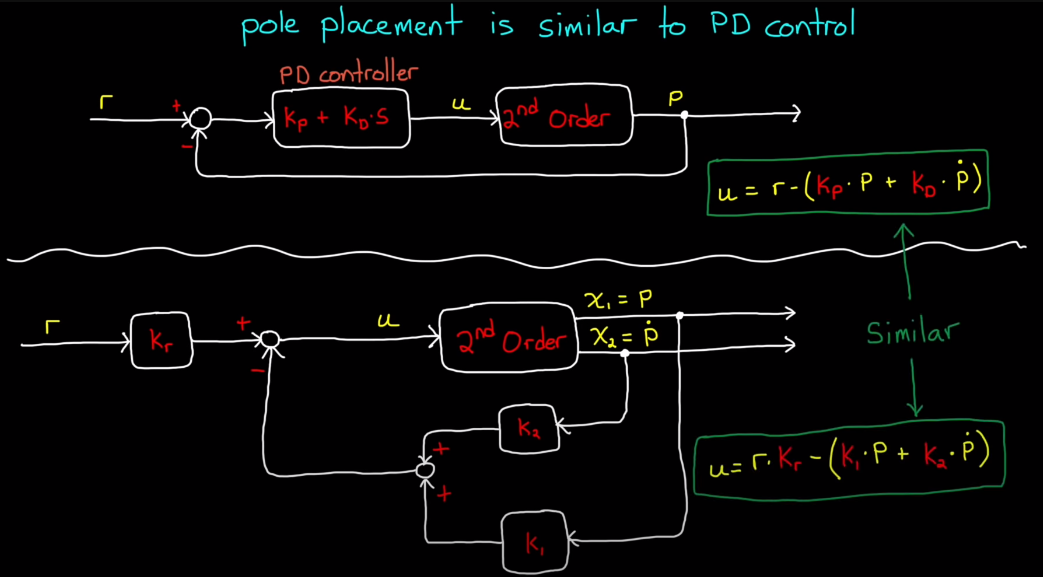 pole placement is similar to PD control
PD controller
r
+
-
Kp + KD·s
u
2nd Order
P
u = r-(Kp·P + KD·Ṗ)
r
Kr
+
-
u
2nd Order
x₁ = P
x₂ = Ṗ
Similar
K₂
+
+
K₁
u = r·Kr - (K₁·P + K₂·Ṗ)